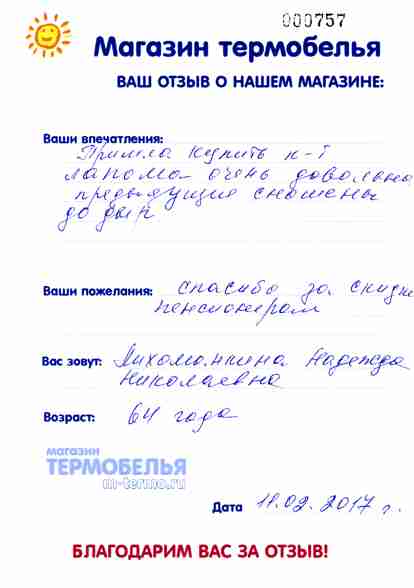 000757
Магазин термобелья
ВАШ ОТЗЫВ О НАШЕМ МАГАЗИНЕ:
Ваши впечатления:
Пришла купить к-т
лапома очень довольна
предыдущие сношены
до дыр
Ваши пожелания: спасибо за скидки
пенсионерам
Вас зовут: Лихоманкина Надежда
Николаевна
Возраст: 64 года
магазин
ТЕРМОБЕЛЬЯ
m-termo.ru
Дата 11.02.2017 г.
БЛАГОДАРИМ ВАС ЗА ОТЗЫВ!